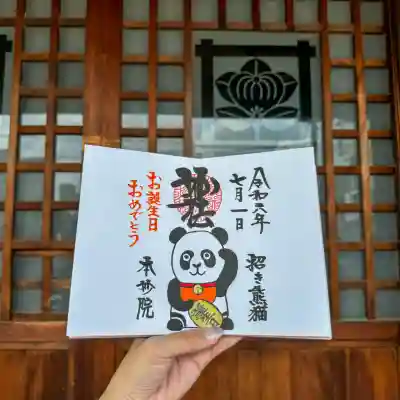 令和元年
七月一日
招き熊猫
妙法
お誕生日
おめでとう
本妙院